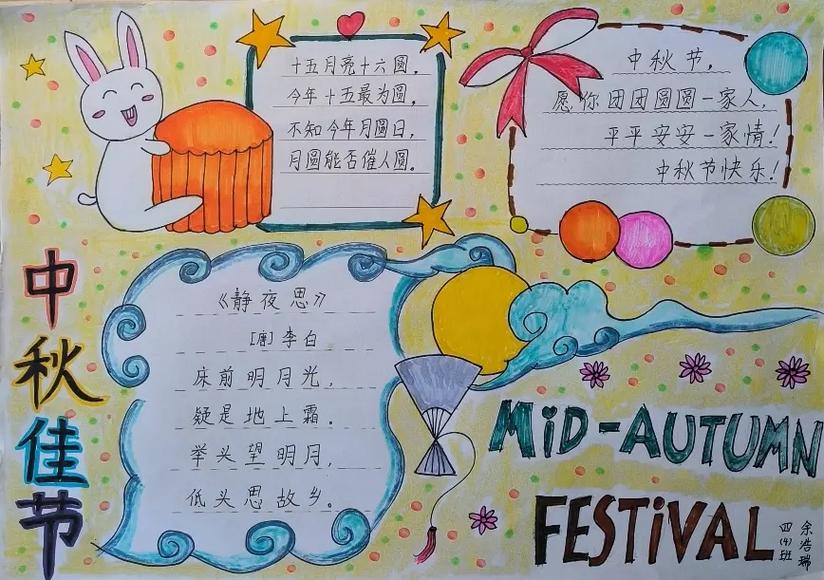 十五月亮十六圆，
今年十五最为圆，
不知今年月圆日，
月圆能否催人圆。
中秋节，
愿你团团圆圆一家人，
平平安安一家情！
中秋节快乐！
中秋佳节
《静夜思》
［唐］李白
床前明月光，
疑是地上霜。
举头望明月，
低头思故乡。
MiD-AUTUMN
FESTiVAL
四(4)班
余浩瑞